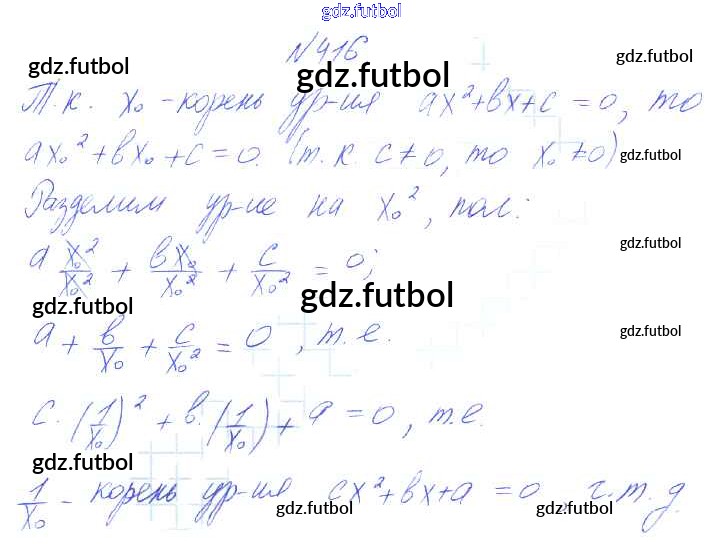 gdz.futbol
№416
gdz.futbol gdz.futbol gdz.futbol
Т.к. x₀ - корень ур-ия ax²+вx+c = 0, то
ax₀² + вx₀ + c = 0. (т.к. c ≠ 0, то x₀ ≠ 0) gdz.futbol
Разделим ур-ие на x₀², пол:
a x₀²/x₀² + вx₀/x₀² + c/x₀² = 0; gdz.futbol
gdz.futbol gdz.futbol
a + в/x₀ + c/x₀² = 0, т.е. gdz.futbol
c·(1/x₀)² + в·(1/x₀) + a = 0, т.е.
gdz.futbol
1/x₀ - корень ур-ия cx²+вx+a = 0, ч.т.д.
gdz.futbol gdz.futbol